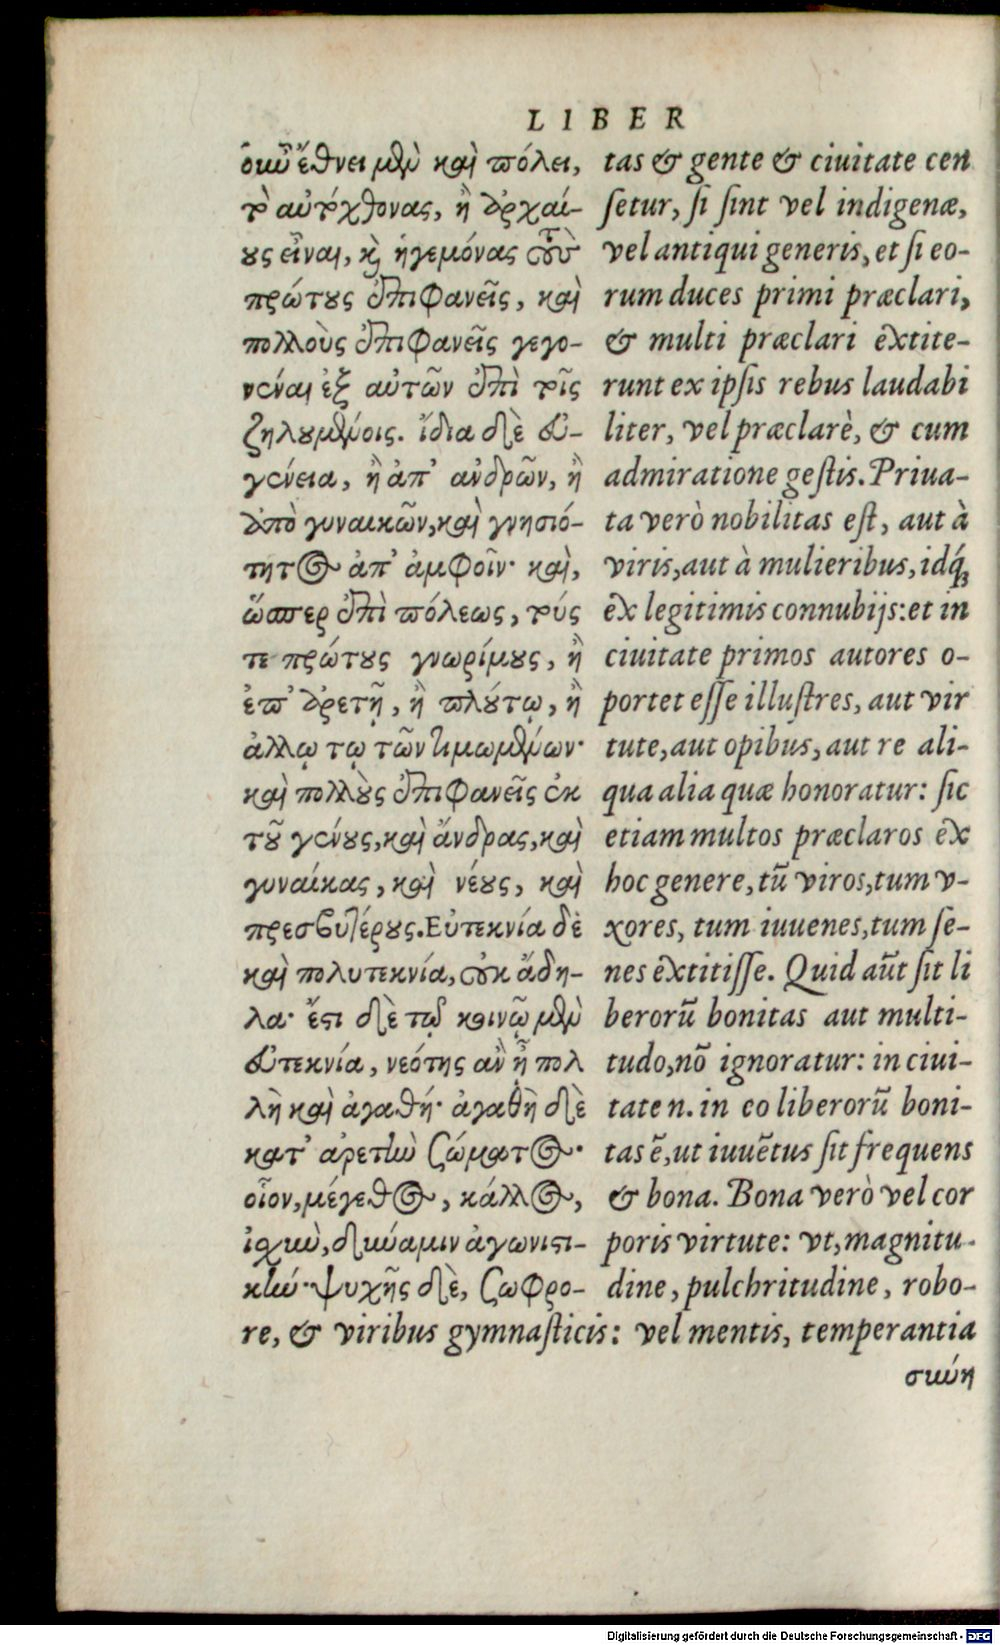 LIBER
ὁιωῦ ἔθνει μὲν καὶ πόλει,
τὸ αὐτόχθονας, ἢ ἀρχαί-
ους εἶναι, καὶ ἡγεμόνας τοὺς
πρώτους ἐπιφανεῖς, καὶ
πολλοὺς ἐπιφανεῖς γεγο-
νέναι ἐξ αὐτῶν ἐπὶ τοῖς
ζηλουμένοις. ἰδία δὲ εὐ-
γένεια, ἢ ἀπ' ἀνδρῶν, ἢ
ἀπὸ γυναικῶν, καὶ γνησιό-
τητος ἀπ' ἀμφοῖν· καὶ,
ὥσπερ ἐπὶ πόλεως, τούς
τε πρώτους γνωρίμους, ἢ
ἐπ' ἀρετῇ, ἢ πλούτῳ, ἢ
ἄλλῳ τῳ τῶν τιμωμένων·
καὶ πολλοὺς ἐπιφανεῖς ἐκ
τοῦ γένους, καὶ ἄνδρας, καὶ
γυναίκας, καὶ νέους, καὶ
πρεσβυτέρους. Εὐτεκνία δὲ
καὶ πολυτεκνία, οὐκ ἄδη-
λα· ἔστι δὲ τῷ κοινῷ μὲν
εὐτεκνία, νεότης ἂν ᾖ πολ
λὴ καὶ ἀγαθή· ἀγαθὴ δὲ
κατ' ἀρετὴν σώματος·
οἷον, μέγεθος, κάλλος,
ἰσχὺν, δύναμιν ἀγωνιστι-
κήν· ψυχῆς δὲ, σωφρο-
tas & gente & ciuitate cen
setur, si sint vel indigenæ,
vel antiqui generis, et si eo-
rum duces primi præclari,
& multi præclari extite-
runt ex ipsis rebus laudabi
liter, vel præclarè, & cum
admiratione gestis. Priua-
ta verò nobilitas est, aut à
viris, aut à mulieribus, idq́;
ex legitimis connubijs: et in
ciuitate primos autores o-
portet esse illustres, aut vir
tute, aut opibus, aut re ali-
qua alia quæ honoratur: sic
etiam multos præclaros ex
hoc genere, tū viros, tum v-
xores, tum iuuenes, tum se-
nes extitisse. Quid aūt sit li
berorū bonitas aut multi-
tudo, nō ignoratur: in ciui-
tate n. in eo liberorū boni-
tas ē, ut iuuētus sit frequens
& bona. Bona verò vel cor
poris virtute: vt, magnitu-
dine, pulchritudine, robo-
re, & viribus gymnasticis: vel mentis, temperantia
σιωύη